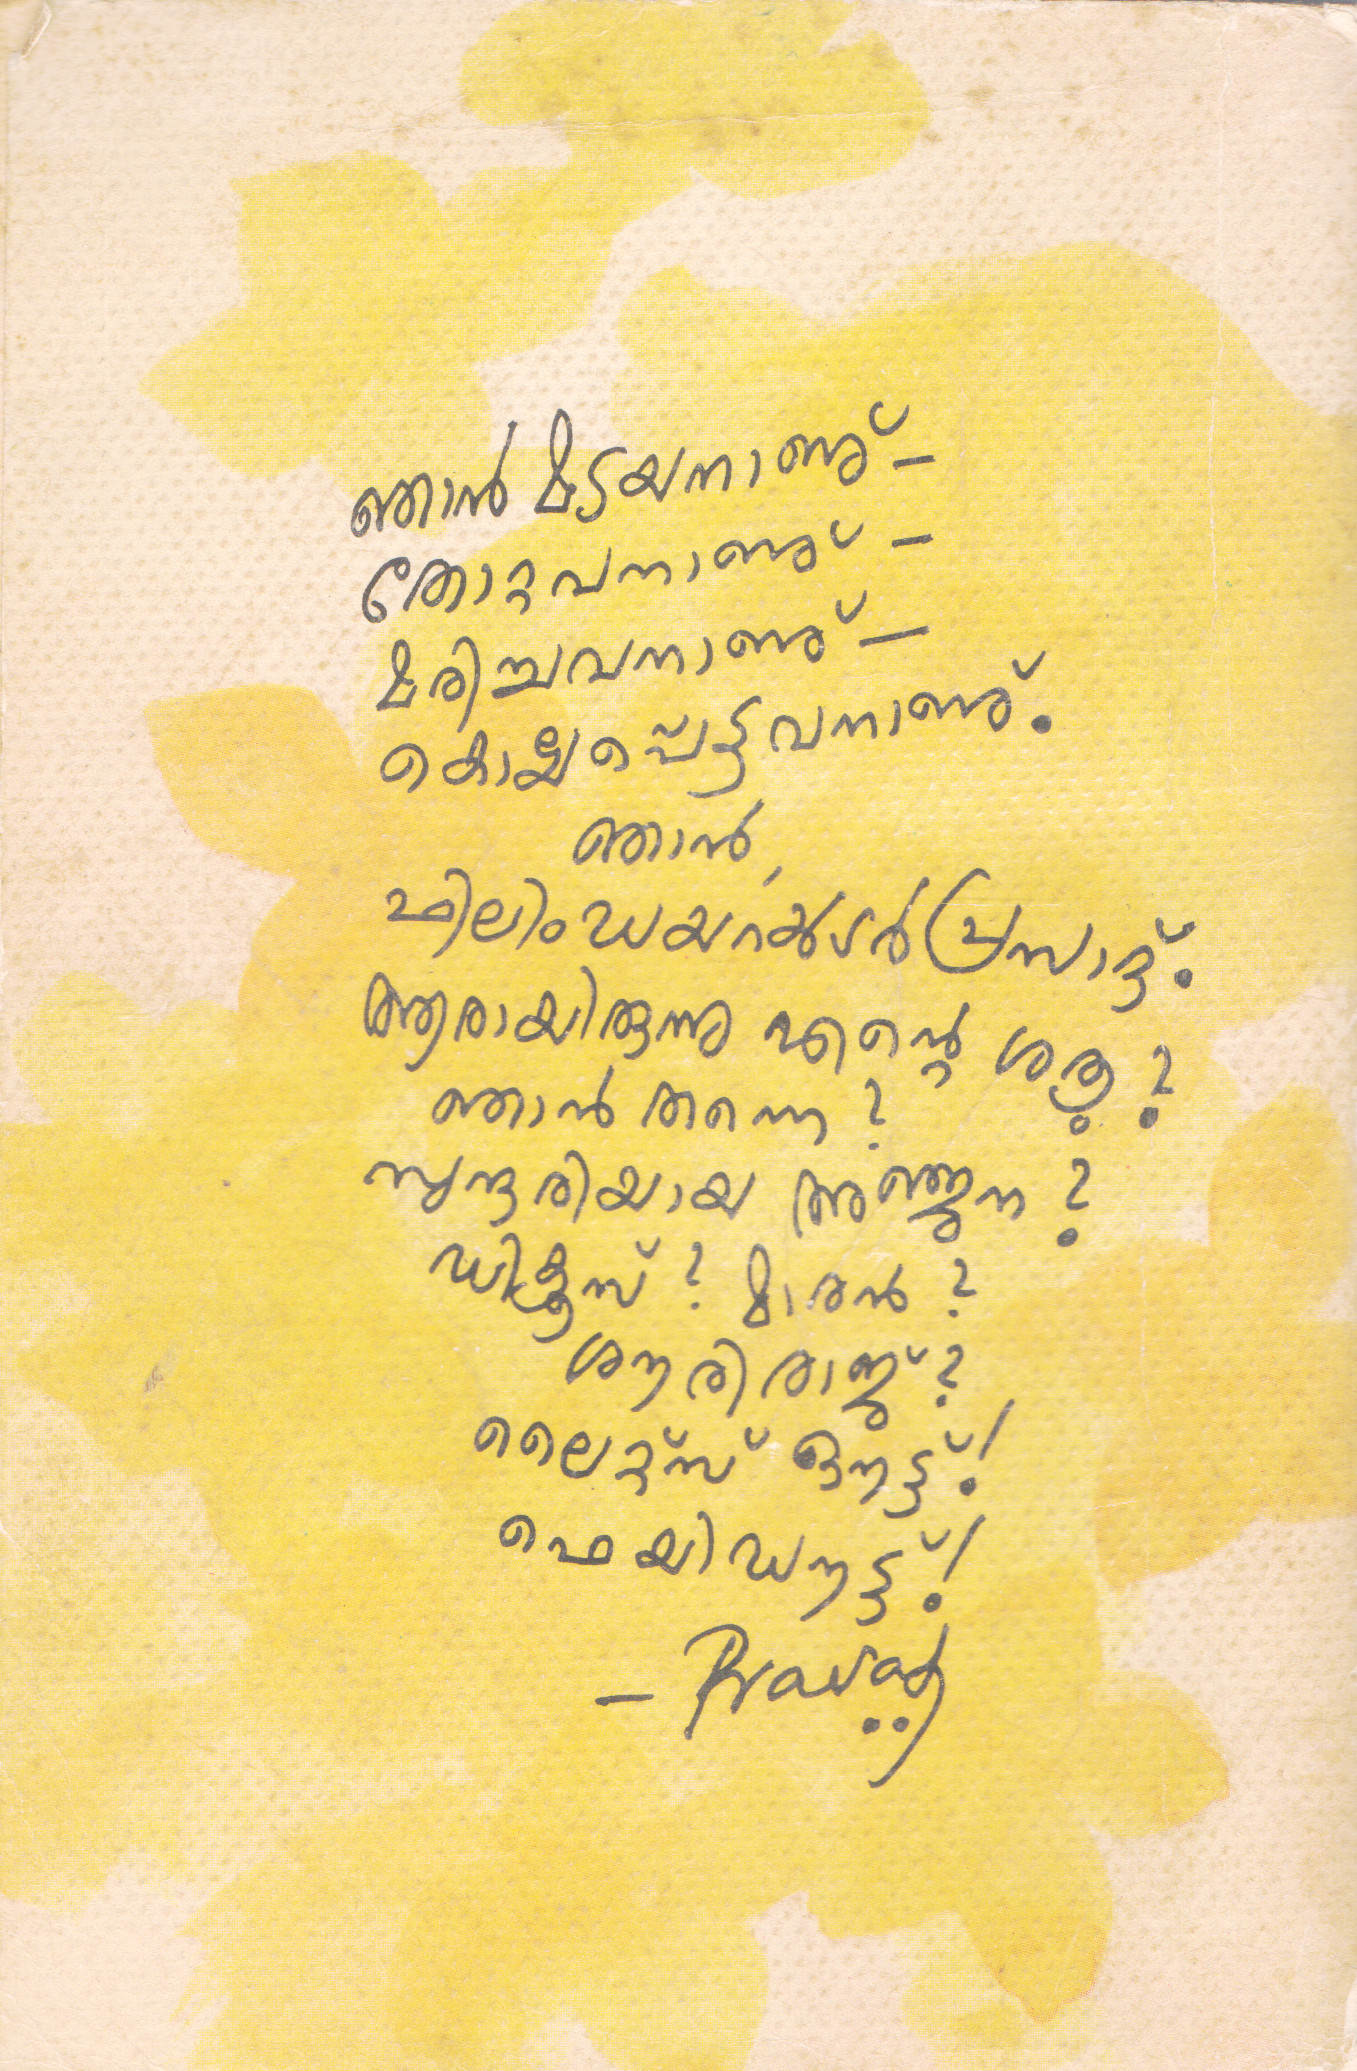 ഞാൻ മടയനാണു് –
തോറ്റവനാണു് –
മരിച്ചവനാണു് –
കൊല്ലപ്പെട്ടവനാണു്.
ഞാൻ,
ഫിലിംഡയറക്ടർ പ്രസാദ്.
ആരായിരുന്നു എന്റെ ശത്രു?
ഞാൻ തന്നെ?
സുന്ദരിയായ അഞ്ജന?
ഡിക്രൂസ്? മാരൻ?
ശൗരിരാജ്?
ലൈറ്റ്സ് ഔട്ട്!
ഫെയിഡൗട്ട്!